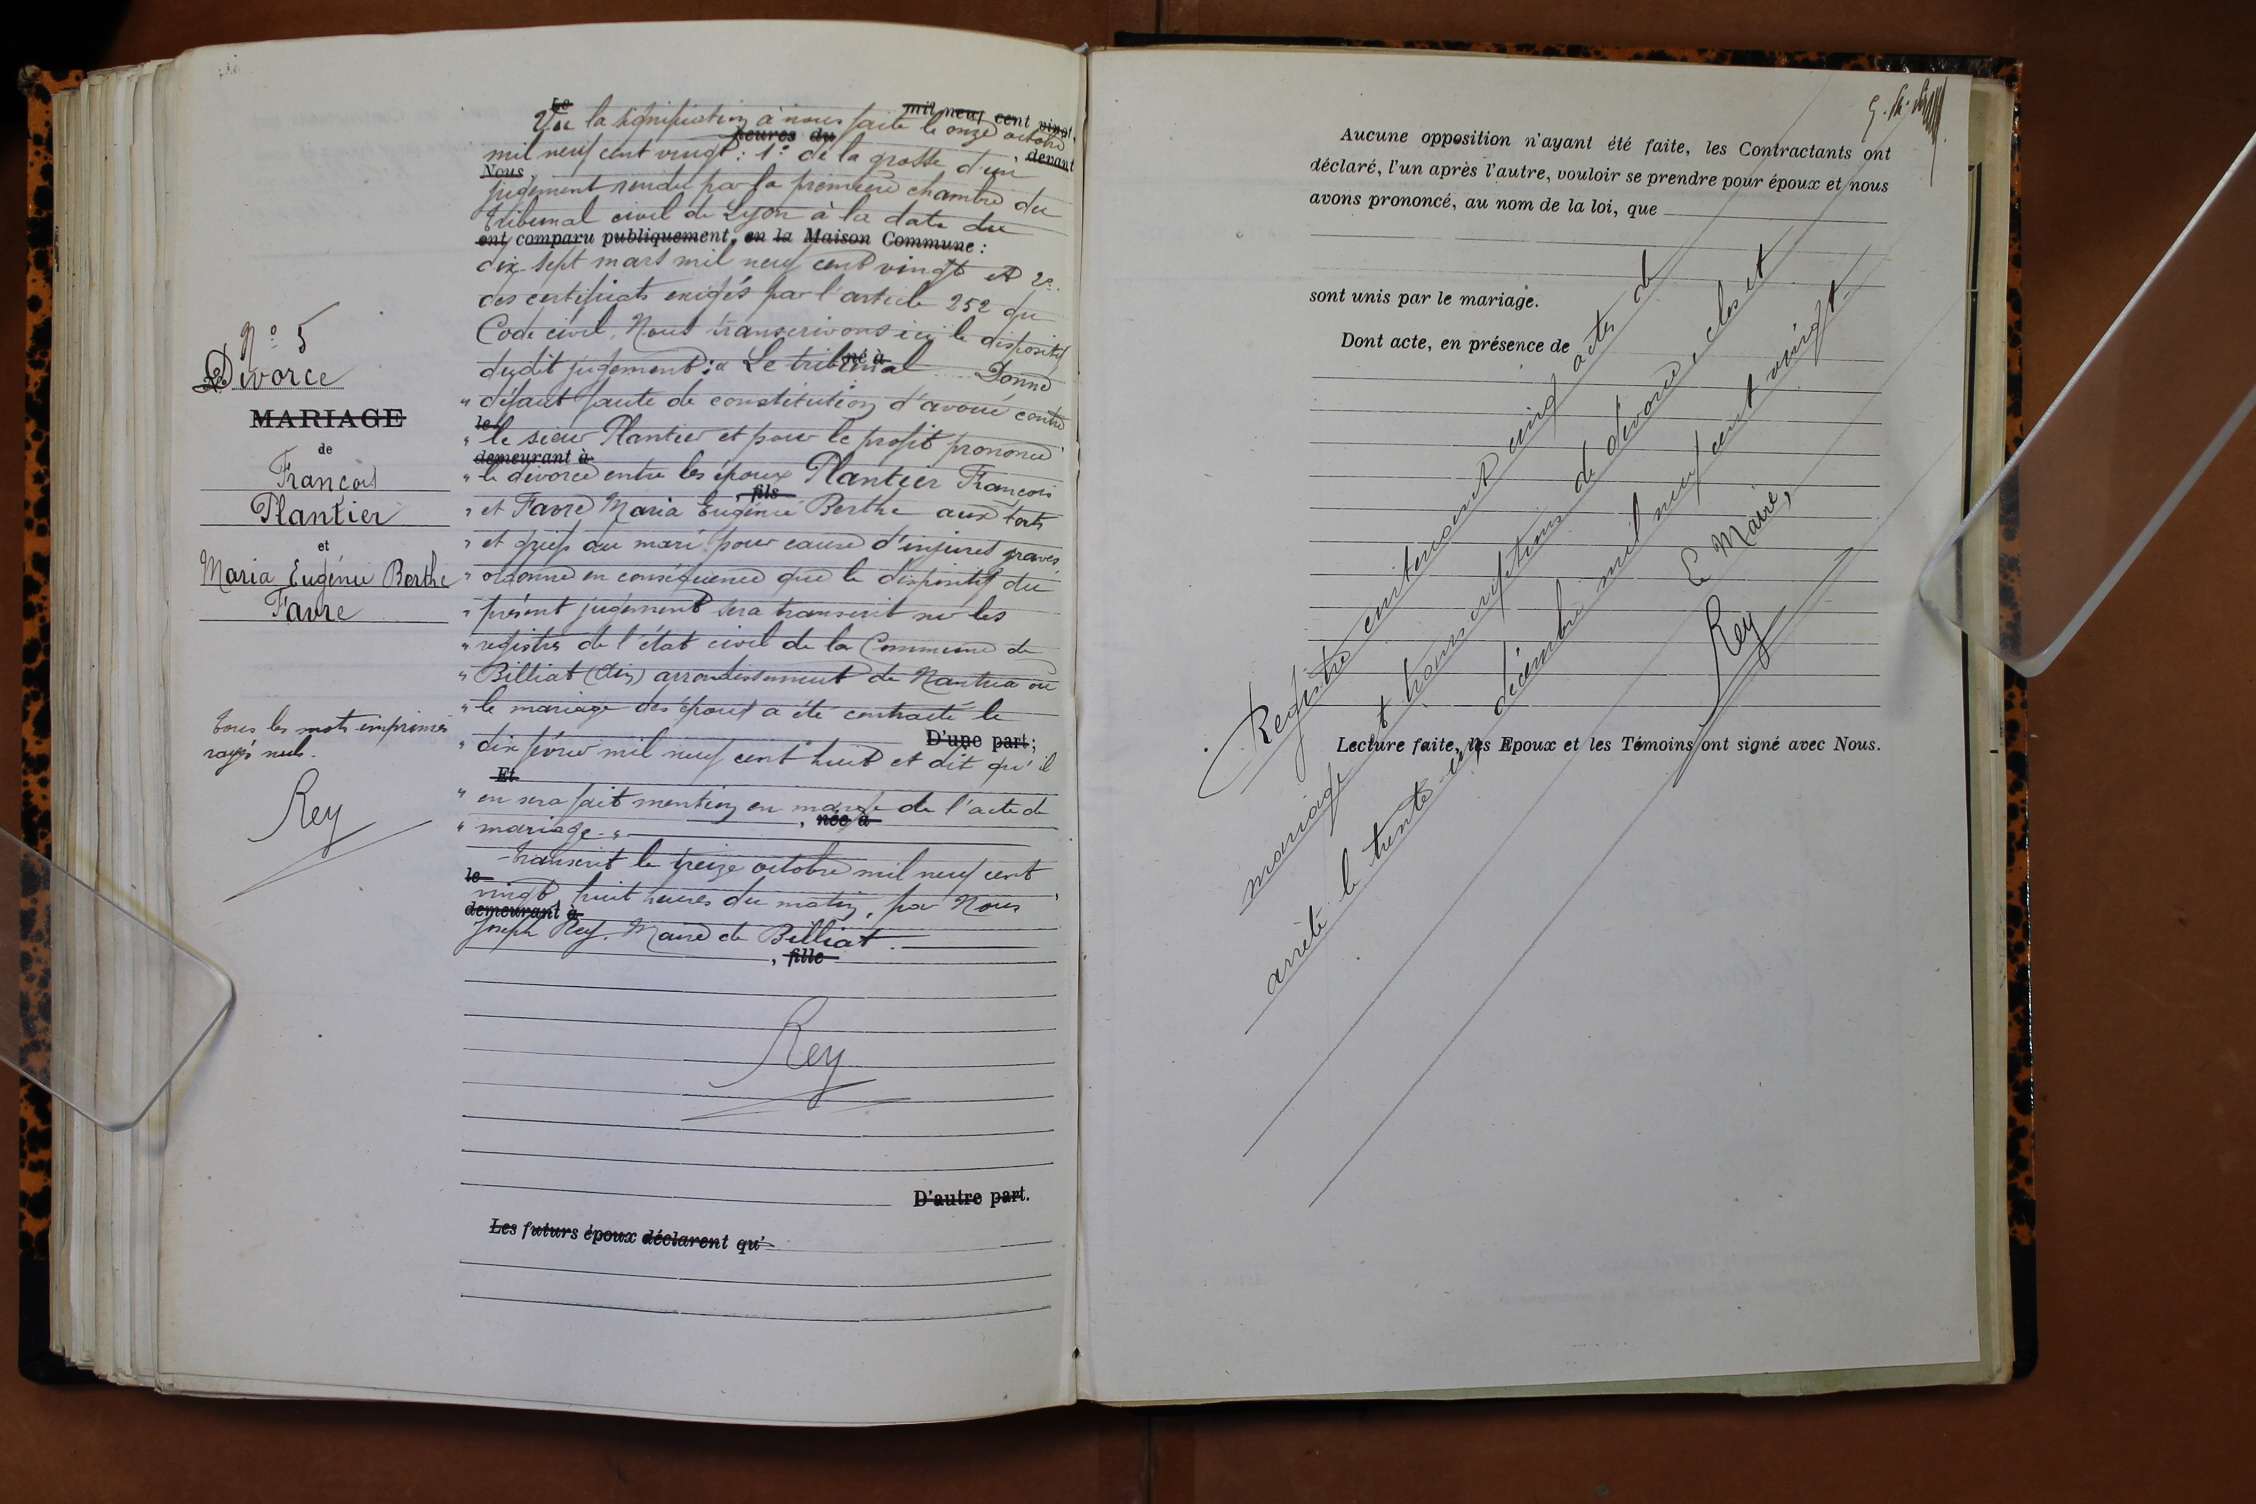 N° 5
Divorce
MARIAGE
de
François
Plantier
et
Maria Eugénie Berthe
Favre
tous les mots imprimés
rayés nuls.
Rey
Le mil neuf cent vingt
Vu la signification à nous faite le onze octobre
heures du
mil neuf cent vingt : 1° de la grosse d'un
devant
Nous,
jugement rendu par la première chambre du
tribunal civil de Lyon à la date du
ont comparu publiquement, en la Maison Commune :
dix sept mars mil neuf cent vingt et 2°
des certificats exigés par l'article 252 du
Code civil. Nous transcrivons ici le dispositif
né à
dudit jugement : « Le tribunal Donne
" défaut faute de constitution d'avoué contre
le
" le sieur Plantier et pour le profit prononce
demeurant à
" le divorce entre les époux Plantier François
, fils
" et Favre Maria Eugénie Berthe aux torts
" et griefs du mari pour cause d'injures graves,
" ordonne en conséquence que le dispositif du
" présent jugement sera transcrit sur les
" registres de l'état civil de la Commune de
" Billiat (Ain) arrondissement de Nantua où
" le mariage des époux a été contracté le
D'une part ;
" dix février mil neuf cent huit et dit qu'il
Et
" en sera fait mention en marge de l'acte de
, née à
" mariage. "
Transcrit le treize octobre mil neuf cent
le
vingt, huit heures du matin, par Nous
demeurant à
Joseph Rey, Maire de Billiat.
, fille
Rey
D'autre part.
Les futurs époux déclarent qu'
Aucune opposition n'ayant été faite, les Contractants ont
déclaré, l'un après l'autre, vouloir se prendre pour époux et nous
avons prononcé, au nom de la loi, que
sont unis par le mariage.
Dont acte, en présence de
Registre contenant cinq actes de
mariage et transcriptions de divorce, clos et
arrêté le trente un décembre mil neuf cent vingt.
Le Maire,
Rey
Lecture faite, les Epoux et les Témoins ont signé avec Nous.